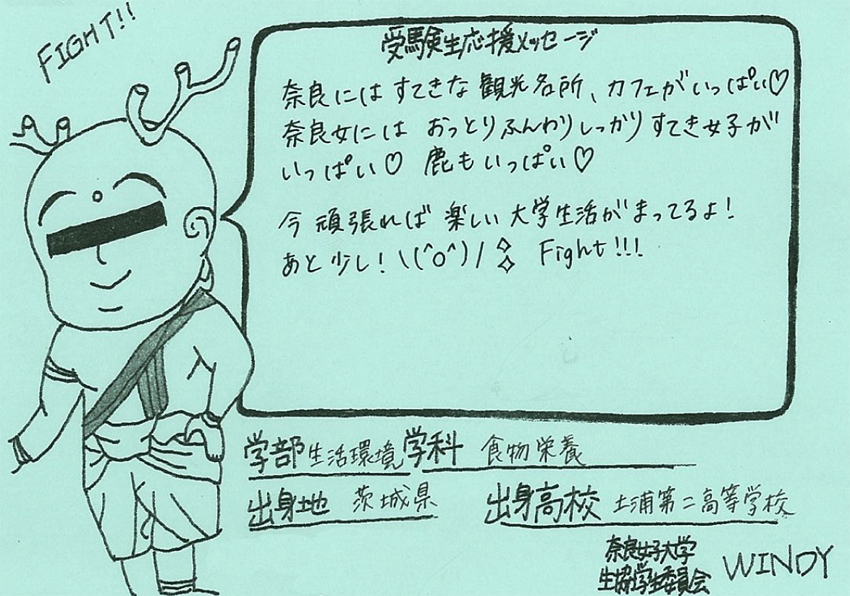 FIGHT!!
受験生応援メッセージ
奈良にはすてきな観光名所、カフェがいっぱい♡
奈良女には おっとりふんわりしっかりすてき女子が
いっぱい♡ 鹿もいっぱい♡
今頑張れば楽しい大学生活がまってるよ!
あと少し!\(^o^)/ Fight!!!
学部 生活環境 学科 食物栄養
出身地 茨城県 出身高校 土浦第二高等学校
奈良女子大学
生協学生委員会 WINDY